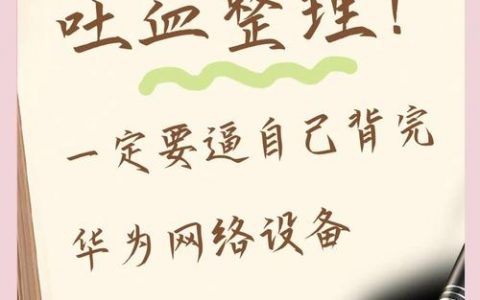 吐血整理！
一定要逼自己背完
华为网络设备